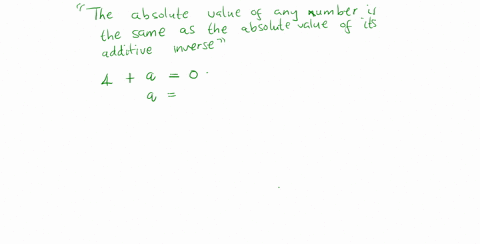 "The absolute value of any number is
the same as the absolute value of its
additive inverse"
4 + a = 0
a =